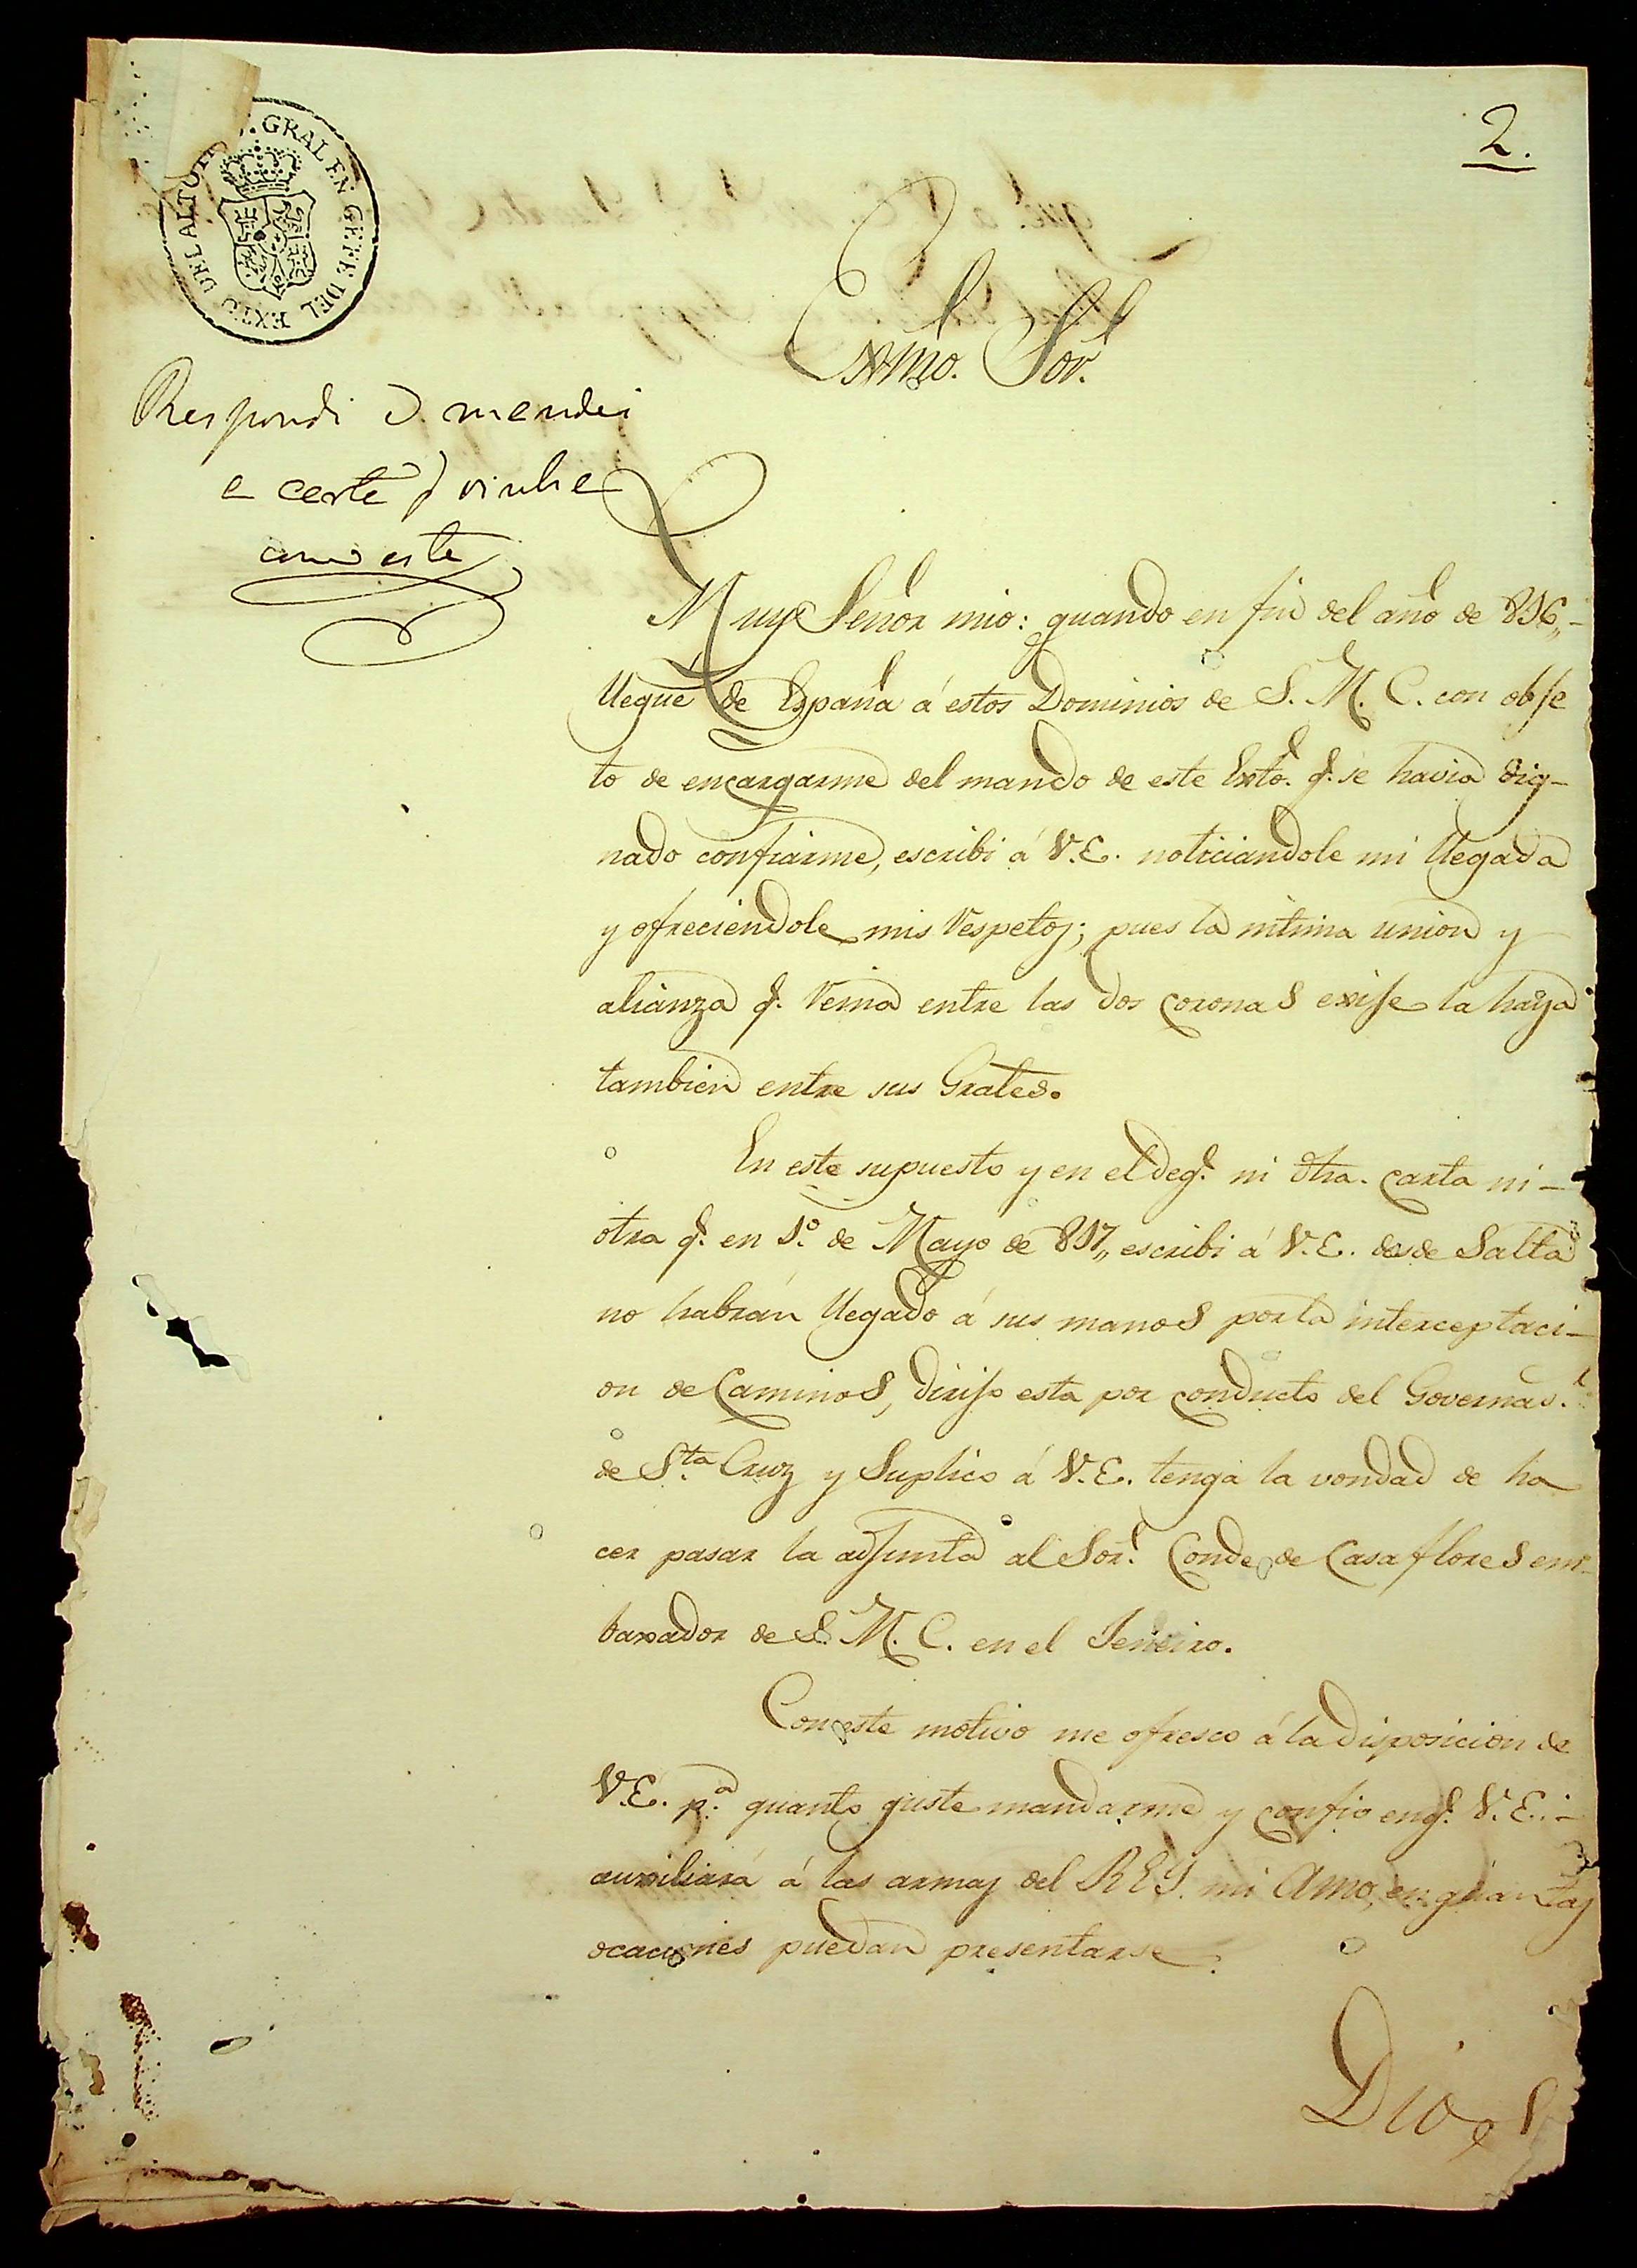 2.
GRAL EN GEFE DEL EXTO DEL ALTO
Exmo. Sor.
Respondi e mandei
a carta q vinha
com esta
Muy Señor mio: quando en fin del año de 816,,
llegué de España á estos Dominios de S. M. C. con obje
to de encargarme del mando de este Exto. q.e se havia dig-
nado confiarme, escribi á V.E. noticiandole mi llegada
y ofreciendole mis respetos; pues la intima union y
alianza q.e reina entre las dos coronas exije la haya
tambien entre sus Grales.
En este supuesto y en el de q.e ni dha. carta ni-
otra q.e en 1.o de Mayo de 817,, escribi á V.E. desde Salta
no habrán llegado á sus manos por la interceptaci-
on de Caminos, dirijo esta por conducto del Governad.r
de S.ta Cruz y Suplico á V.E. tenga la vondad de ha
cer pasar la adjunta al Sor. Conde de Casaflores em-
baxador de S. M. C. en el Jeneiro.
Con este motivo me ofresco á la disposicion de
V.E. p.a quanto guste mandarme y confio en q.e V.E.
auxiliará á las armas del REY. mi Amo, en quantas
ocaciones puedan presentarse.
Dios